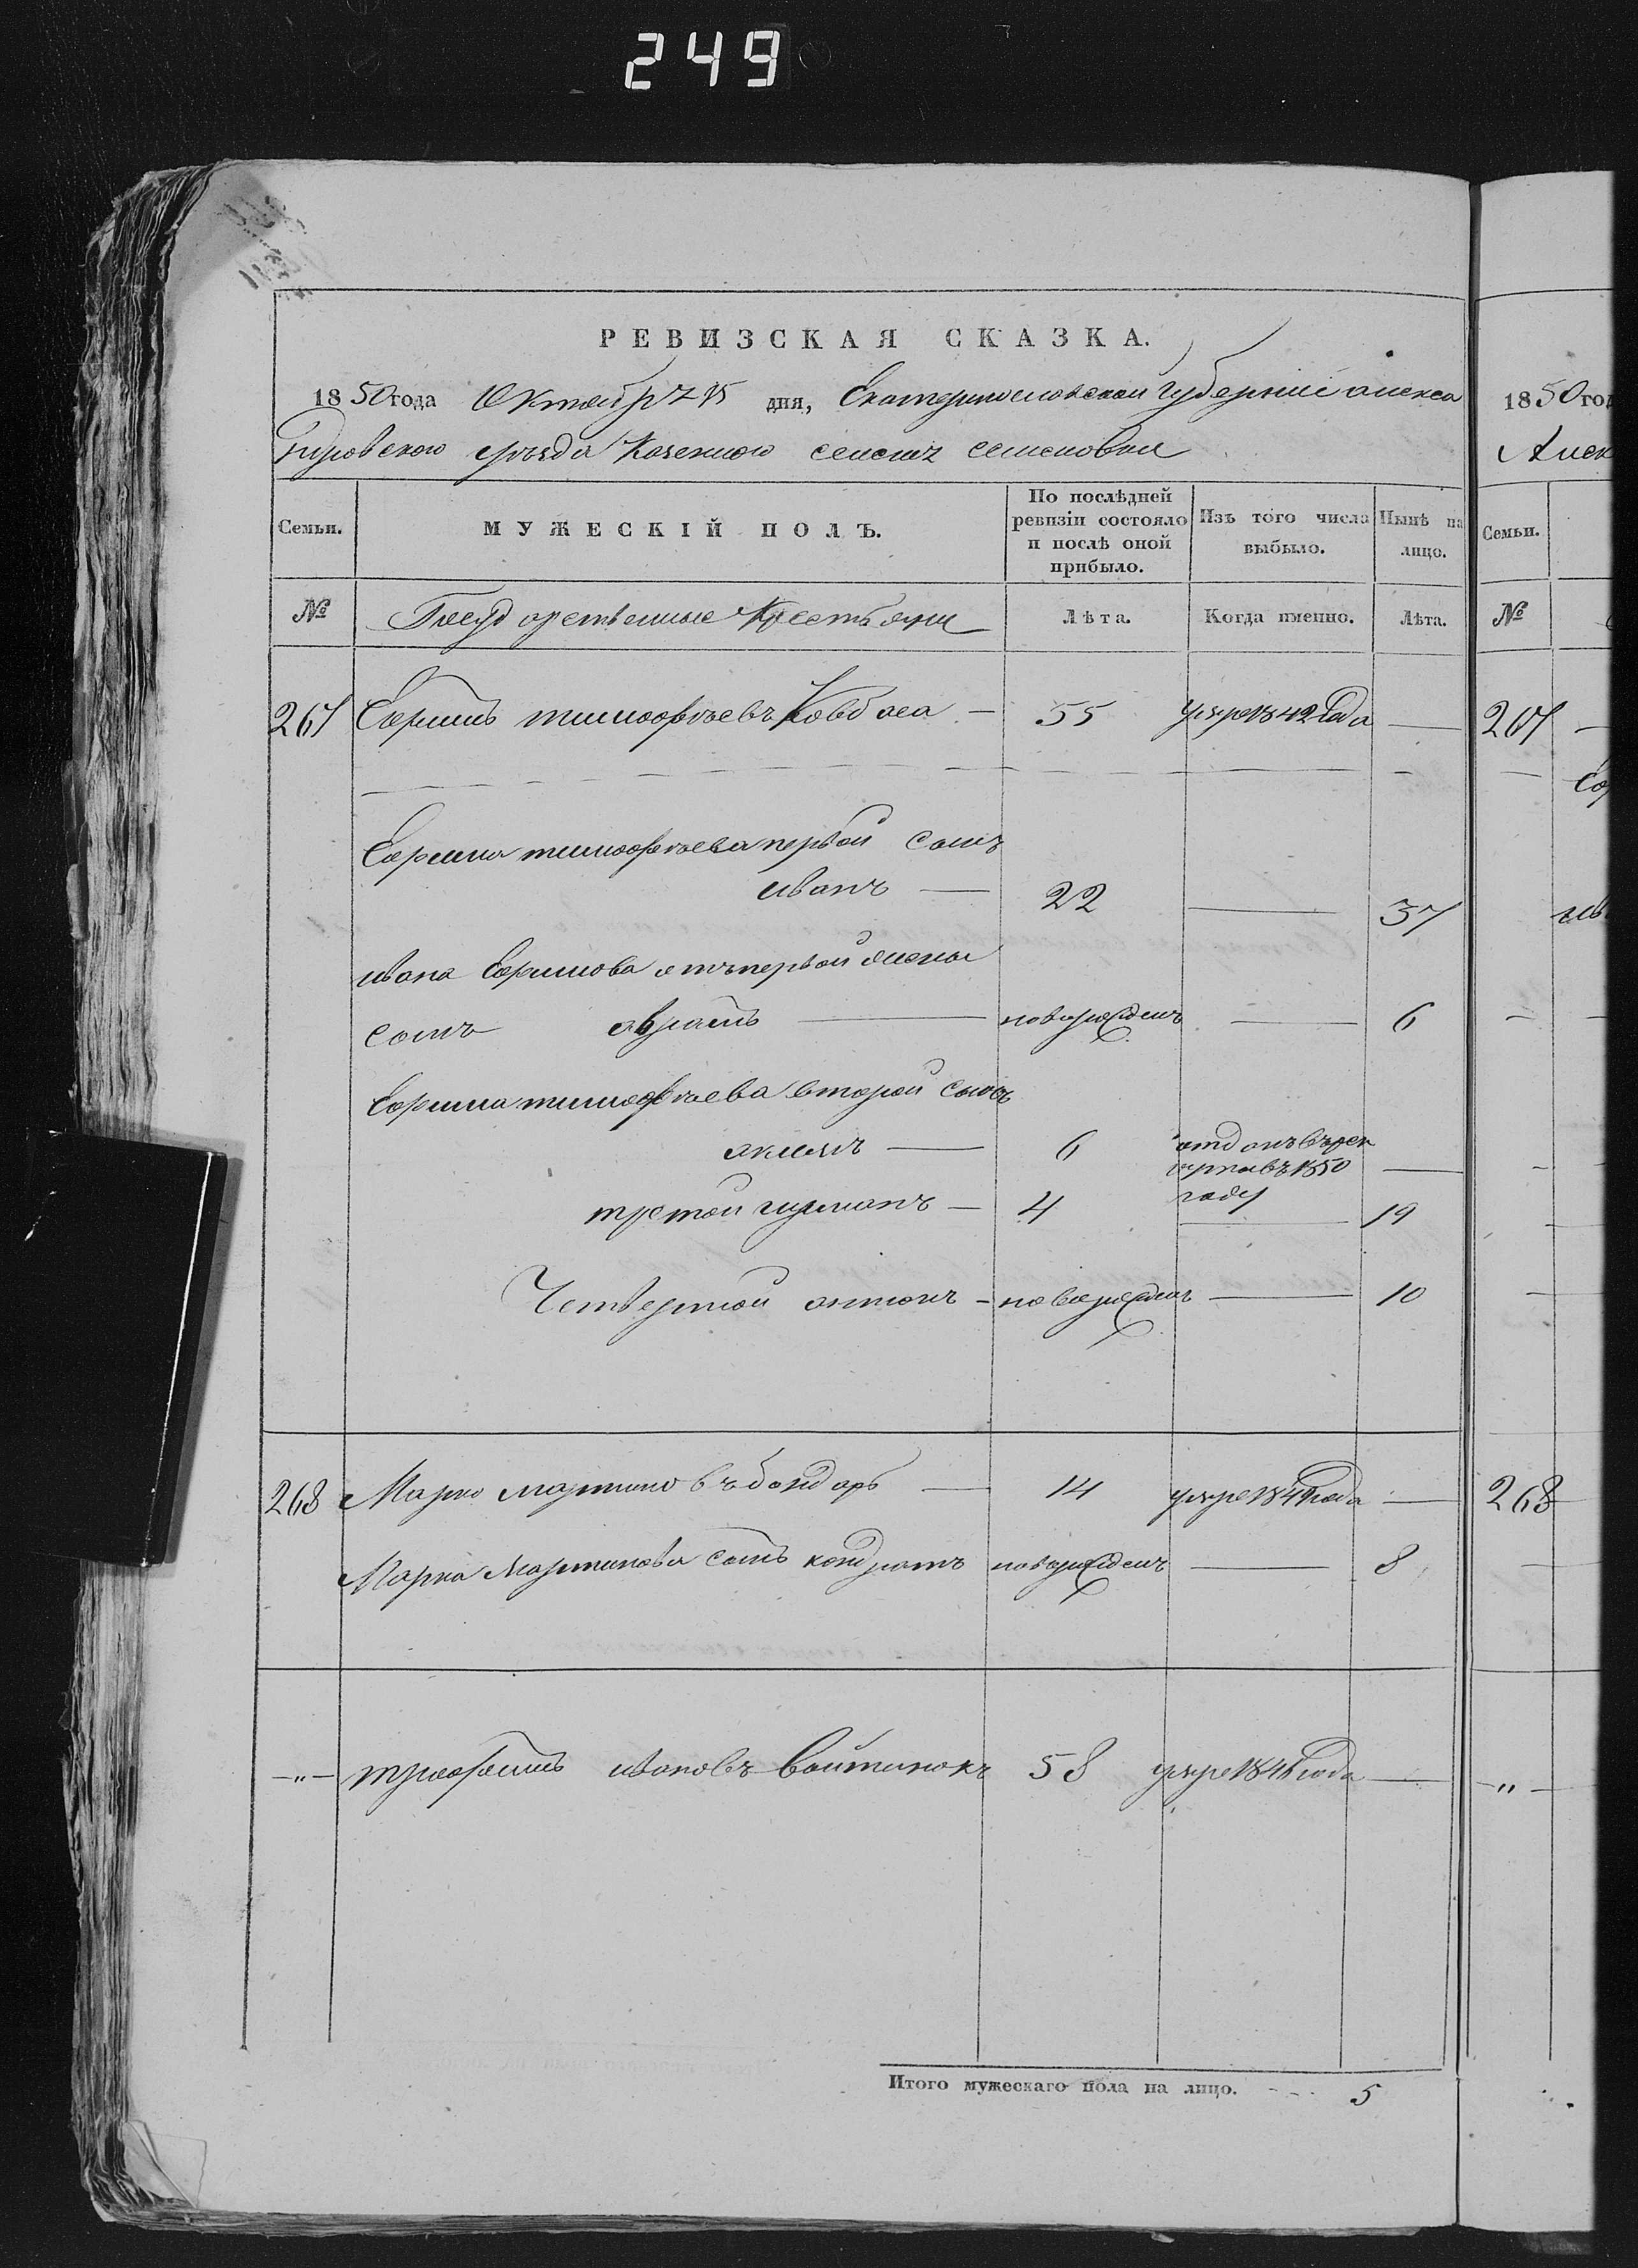 249
РЕВИЗСКАЯ СКАЗКА.
1850 года Октября 15 дня, Екатеринославской губерніи алекса
ндровского уезда Казенного селенія семеновки
Семьи.
МУЖЕСКІЙ ПОЛЪ.
По послѣдней ревизіи состояло и послѣ оной прибыло.
Изъ того числа выбыло.
Нынѣ на лицо.
№
Государственные Крестьяни
Лѣта.
Когда именно.
Лѣта.
267 Ефимъ тимофѣевъ Ковбаса — 55 умре 1842 года —
Ефима тимофѣева первой сынъ
иванъ — 22 — 37
ивана Ефимова отъ первой жены
сынъ — новорожденъ — 6
Ефима тимофѣева второй сынъ
акимъ — 6 отданъ въ рек
рута въ 1850 —
году
третой — 4 — 19
Четвертой антонъ - новорожденъ — 10
268 Марко мартиновъ бондарь — 14 умре года —
Марка Мартинова сынъ кондратъ новорожденъ — 8
—„— трофимъ ивановъ 58 умре года —
Итого мужескаго пола на лицо. --- 5
1850 год
Алек
Семьи.
№
267 —
268
„